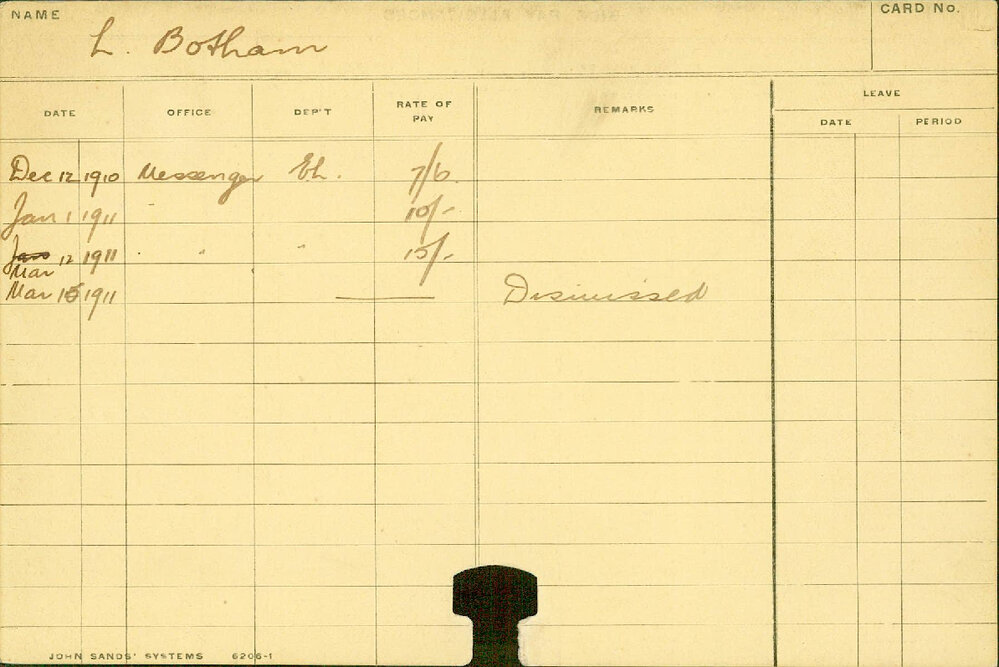 NAME CARD No.
L. Botham
LEAVE
DATE OFFICE DEP'T RATE OF PAY REMARKS DATE PERIOD
Dec 12 1910 Messenger Eh. 7/6
Jan 1 1911 " 10/-
Jan 12 1911 " " 15/-
Mar
Mar 15 1911 — Dismissed
JOHN SANDS' SYSTEMS 6206-1